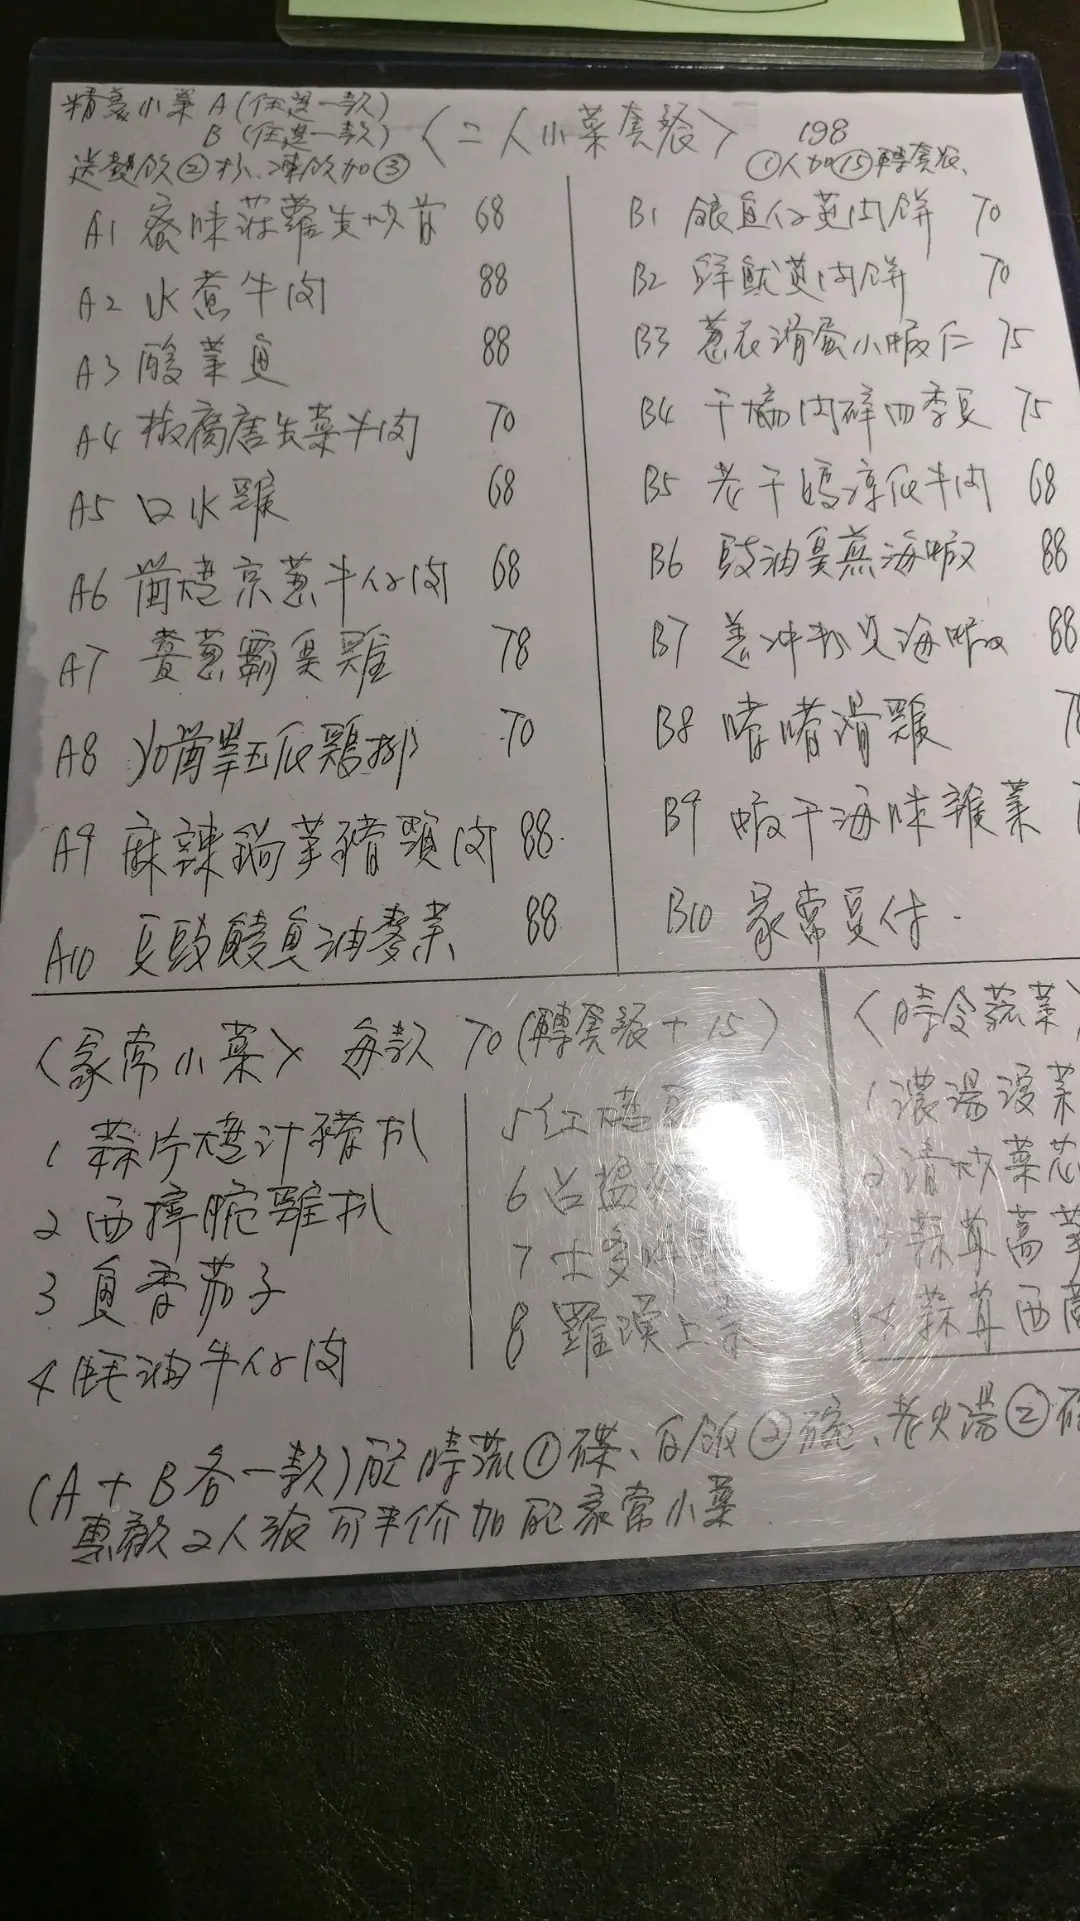 精裝小菜 A (任選一款)
B (任選一款)
〈二人小菜套餐〉 198
送熱飲②杯、凍飲加③
①人加⑮轉套飯、
A1 蜜味菠蘿生炒骨 68
A2 水煮牛肉 88
A3 酸菜魚 88
A4 椒腐唐生菜牛肉 70
A5 口水雞 68
A6 醬燒京蔥牛仔肉 68
A7 薑蔥霸皇雞 78
A8 青瓜雞排 70
A9 麻辣鍋芋豬頸肉 88
A10 豆豉鯪魚油麥菜 88
B1 銀魚仔蒸肉餅 70
B2 鮮魷蒸肉餅 70
B3 蔥花滑蛋小蝦仁 75
B4 干煸肉碎四季豆 75
B5 老干媽涼瓜牛肉 68
B6 豉油皇煎海蝦 88
B7 海蝦 88
B8 啫啫滑雞
B9 蝦干海味雜菜
B10 家常豆付
〈家常小菜〉 每款 70 (轉套飯+15)
1 蒜片燒汁豬扒
2 西檸脆雞扒
3 魚香茄子
4 蠔油牛仔肉
5 紅燒
6
7 士多
8 羅漢上素
〈時令蔬菜〉
1 濃湯浸菜
2 清炒菜芯
3 蒜茸
4 蒜茸西
(A+B各一款)配時蔬①碟、白飯②碗、老火湯②
惠顧2人餐可半价加配家常小菜